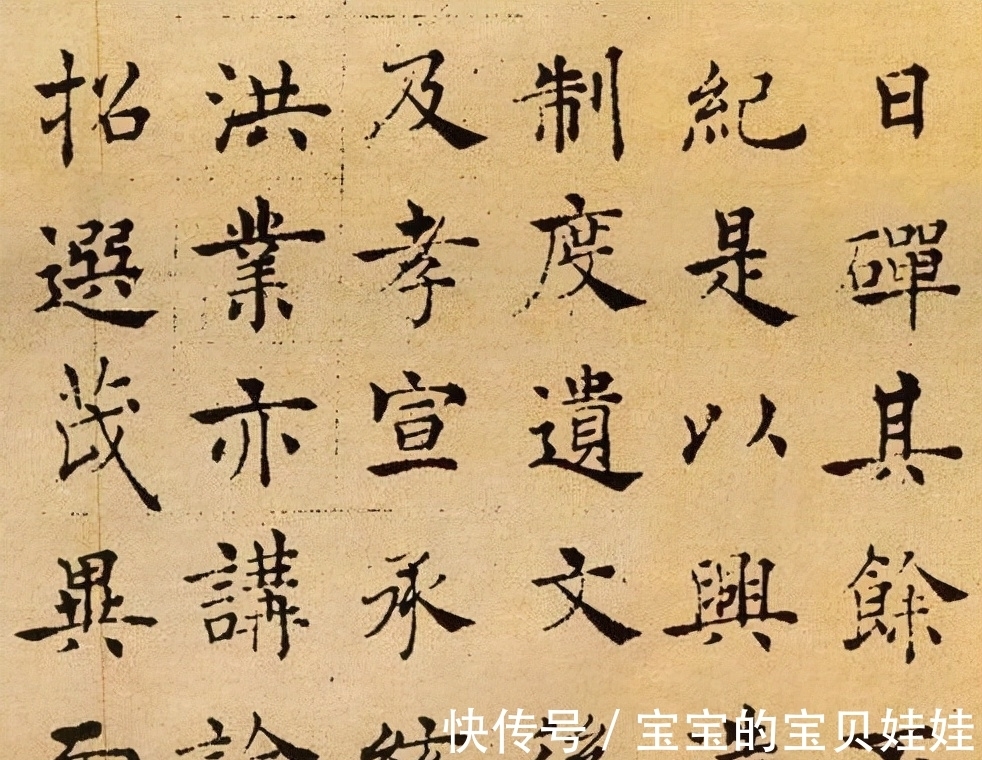 日磾其餘
紀是以興
制度遺文
及孝宣承
洪業亦講論
招選茂異而
快传号/宝宝的宝贝娃娃